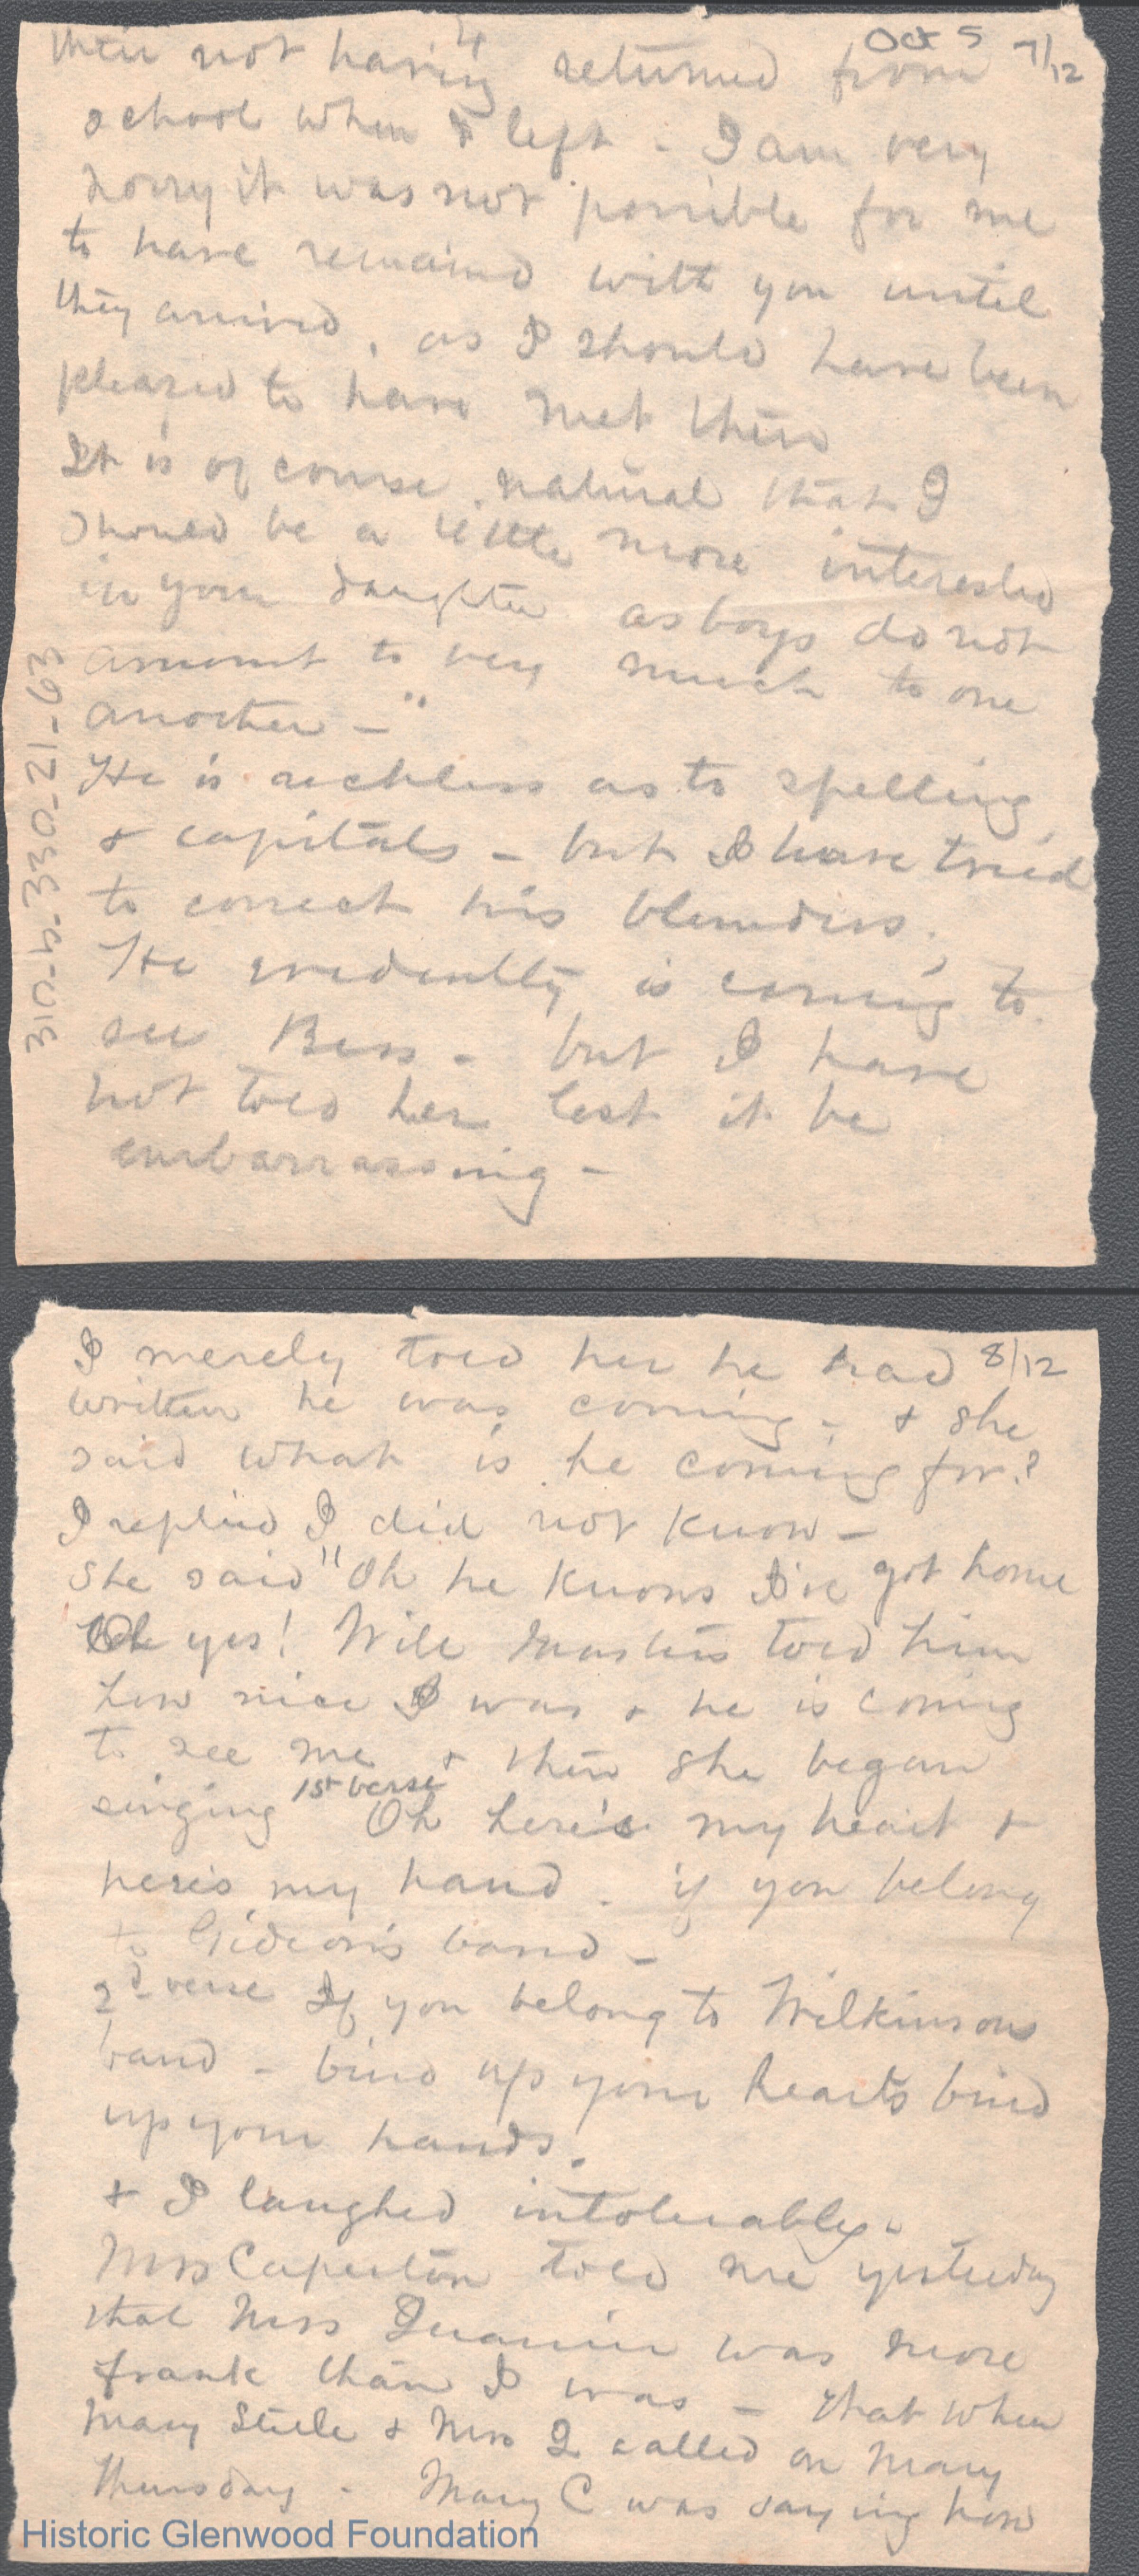 4
Oct 5 7/12
their not having returned from
school when I left - I am very
sorry it was not possible for me
to have remained with you until
they arrived, as I should have been
pleased to have met them
It is of course natural that I
should be a little more interested
in your daughter as boys do not
amount to very much to one
another - "
He is reckless as to spelling
+ capitals - but I have tried
to correct his blunders.
He evidently is coming to
see Bess - but I have
not told her lest it be
embarrassing -
310-b.330-21-63
I merely told her he had 8/12
written he was coming - + she
said what is he coming for?
I replied I did not know -
She said "Oh he knows I've got home
Oh yes! Will Masters told him
how nice I was + he is coming
to see me + then she began
singing 1st verse Oh here's my heart +
here's my hand - if you belong
to Gideon's band -
2d verse If you belong to Wilkinsons
band - bind up your hearts bind
up your hands.
+ I laughed intolerably.
Mrs Caperton told me yesterday
that Mrs Quarrier was more
frank than I was - that when
Mary Steele + Mrs Q called on Mary
Thursday - Mary C was saying how
Historic Glenwood Foundation